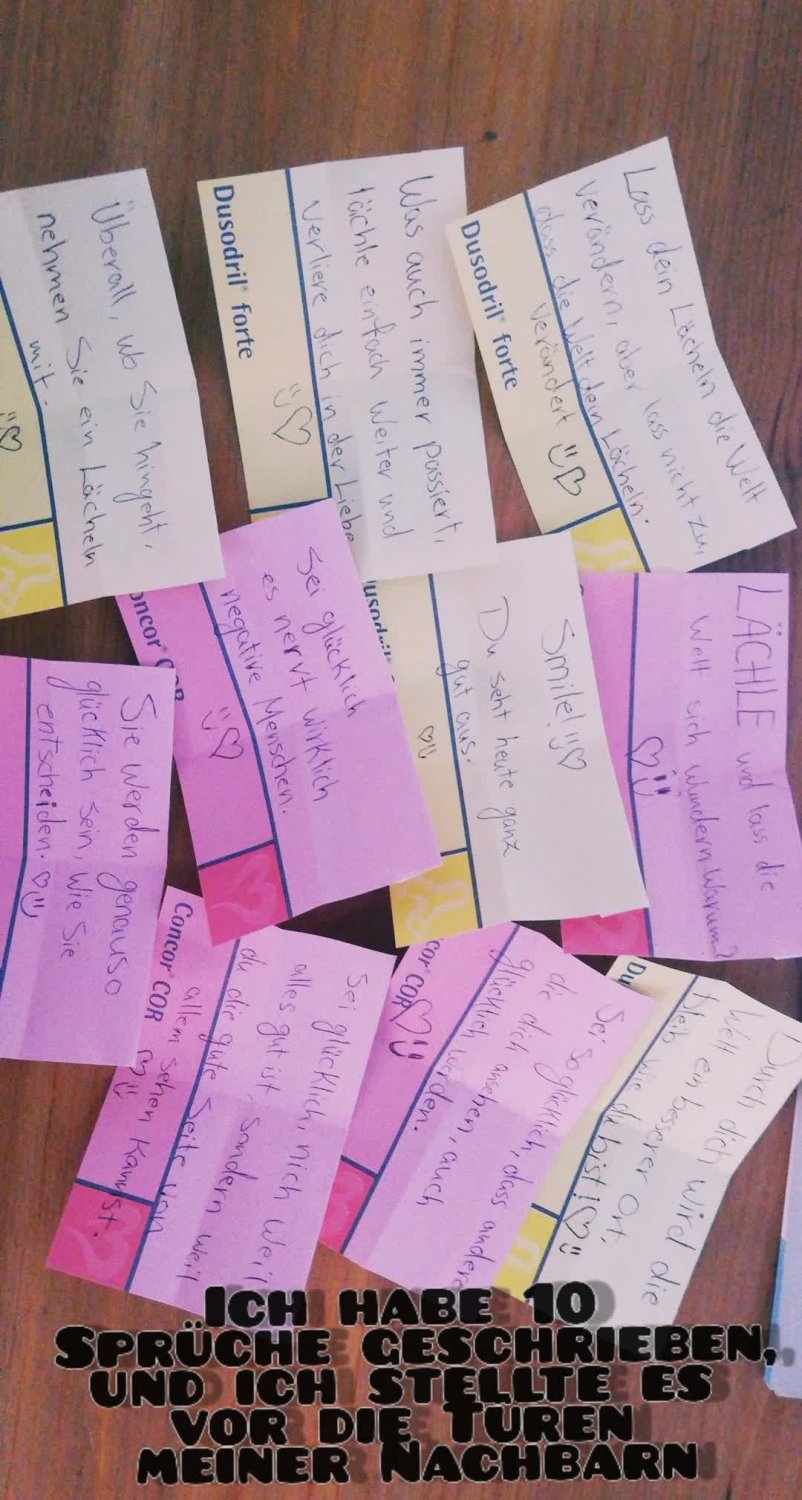 Lass dein Lächeln die Welt
verändern, aber lass nicht zu,
dass die Welt dein Lächeln.
verändert
Dusodril® forte
Was auch immer passiert,
lächle einfach weiter und
verliere dich in der Liebe
Dusodril® forte
Überall, wo Sie hingeht,
nehmen Sie ein Lächeln
mit.
LÄCHLE und lass die
Welt sich wundern warum?
Smile!
Du seht heute ganz
gut aus.
usodril
Sei glücklich
es nervt wirklich
negative Menschen.
oncor COR
Sie werden genauso
glücklich sein, wie Sie
entscheiden.
Durch dich wird die
Welt en besserer Ort,
bleib wie du bist!
Du
Sei so glücklich, dass andere
die dich ansehen, auch
glücklich werden.
cor COR
Sei glücklich, nich weil
alles gut ist, sondern weil
du die gute Seite von
allem sehen kannst.
Concor COR
Ich habe 10
Sprüche geschrieben,
und ich stellte es
vor die Türen
meiner Nachbarn